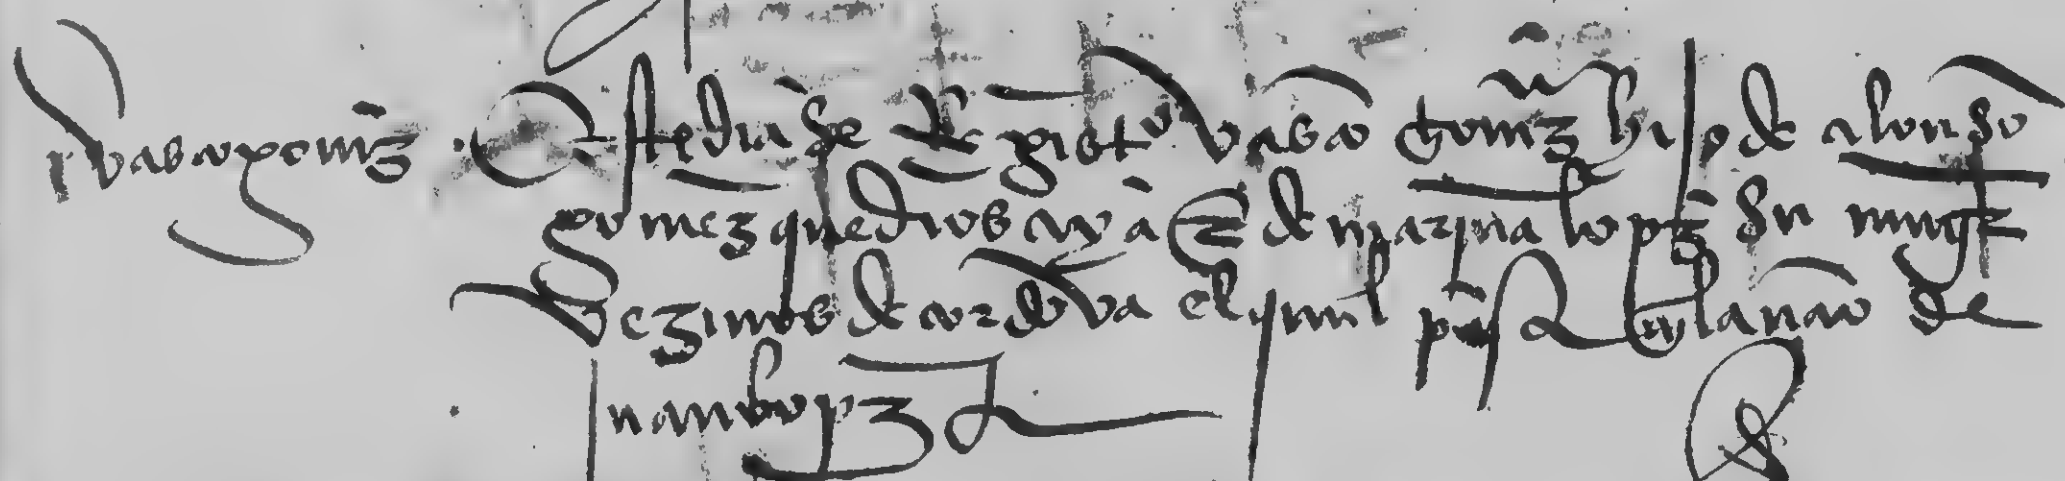 vasco gomez Este dia se Registro vasco gomez hijo de alonso
gomez que dios aya E de marina lopez su muger
vezinos de cordova el qual paso A la nao de
juan lopez